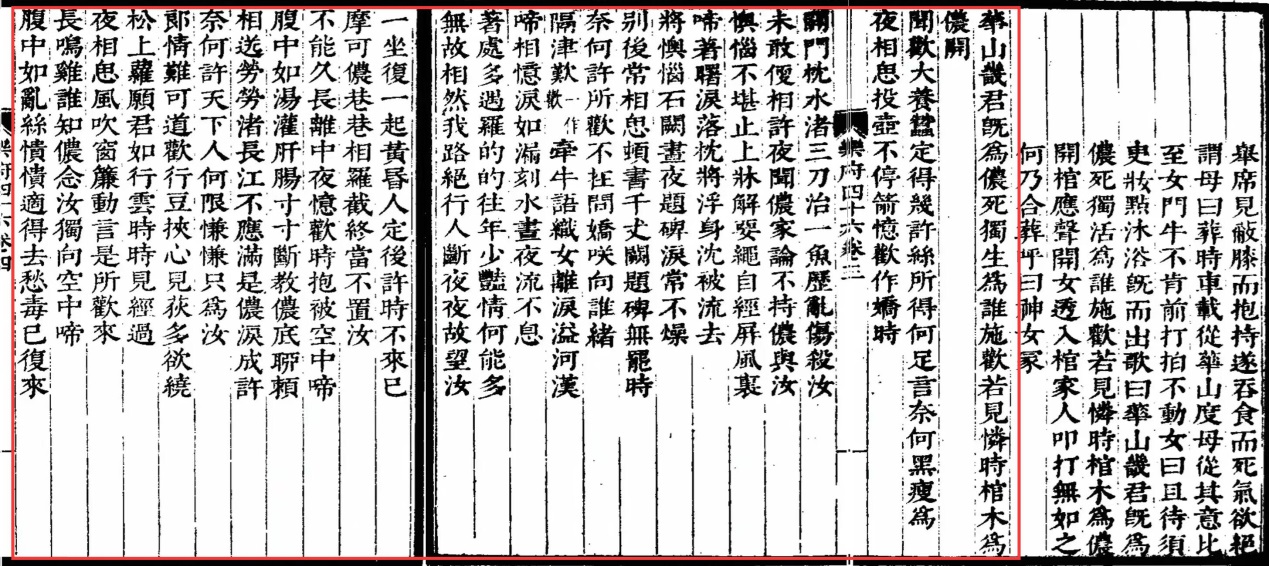 舉席見蔽膝而抱持遂吞食而死氣欲絕
謂母曰葬時車載從華山度母從其意比
至女門牛不肯前打拍不動女曰且待須
臾妝點沐浴既而出歌曰華山畿君既爲
儂死獨活爲誰施歡若見憐時棺木爲儂
開棺應聲開女透入棺家人叩打無如之
何乃合葬呼曰神女冢
華山畿君既爲儂死獨生爲誰施歡若見憐時棺木爲
儂開
聞歡大養蠶定得幾許絲所得何足言奈何黑瘦爲
夜相思投壺不停箭憶歡作嬌時
開門枕水渚三刀治一魚歷亂傷殺汝
未敢便相許夜聞儂家論不持儂與汝
懊惱不堪止上牀解要繩自經屏風裏
啼著曙淚落枕將浮身沈被流去
將懊惱石闕晝夜題碑淚常不燥
別後常相思頓書千丈闕題碑無罷時
奈何許所歡不在問嬌笑向誰緒
隔津歎一作歡牽牛語織女離淚溢河漢
啼相憶淚如漏刻水晝夜流不息
著處多遇羅的的往年少豔情何能多
無故相然我路絕行人斷夜夜故望汝
一坐復一起黃昏人定後許時不來已
摩可儂巷巷相羅截終當不置汝
不能久長離中夜憶歡時抱被空中啼
腹中如湯灌肝腸寸寸斷教儂底聊賴
相送勞勞渚長江不應滿是儂淚成許
奈何許天下人何限慊慊只爲汝
郎情難可道歡行豆挾心見荻多欲繞
松上蘿願君如行雲時時見經過
夜相思風吹窗簾動言是所歡來
長鳴雞誰知儂念汝獨向空中啼
腹中如亂絲憒憒適得去愁毒已復來
樂府四十六卷三
樂府四十六卷四